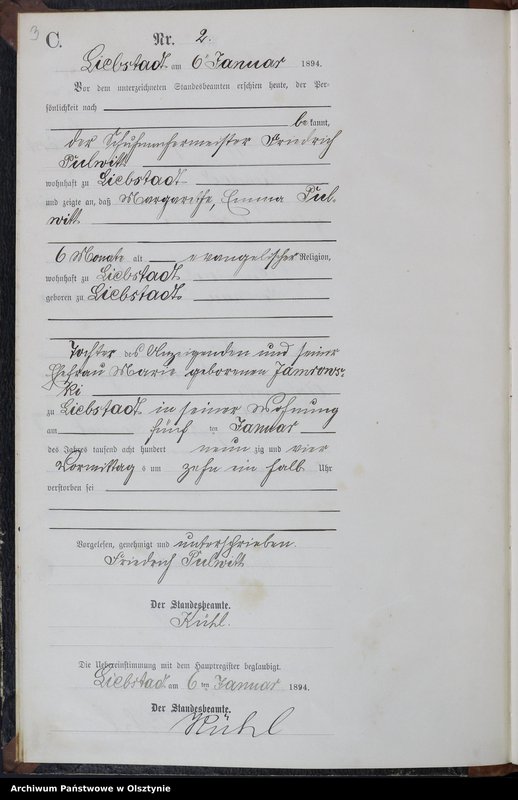 3
C.
Nr. 2.
Liebstadt am 6ten Januar 1894.
Vor dem unterzeichneten Standesbeamten erschien heute, der Per-
sönlichkeit nach
bekannt,
der Schuhmachermeister Friedrich
Pulwitt
wohnhaft zu Liebstadt
und zeigte an, daß Margarethe, Emma Pul-
witt
6 Monate alt evangelischer Religion,
wohnhaft zu Liebstadt
geboren zu Liebstadt
Tochter des Anzeigenden und seiner
Ehefrau Marie geborenen Jamrows-
ki
zu Liebstadt in seiner Wohnung
am fünf ten Januar
des Jahres tausend acht hundert neun zig und vier
Vormittags um zehn ein halb Uhr
verstorben sei
Vorgelesen, genehmigt und unterschrieben.
Friedrich Pulwitt
Der Standesbeamte.
Kühl.
Die Uebereinstimmung mit dem Hauptregister beglaubigt.
Liebstadt am 6ten Januar 1894.
Der Standesbeamte.
Kühl
Archiwum Państwowe w Olsztynie